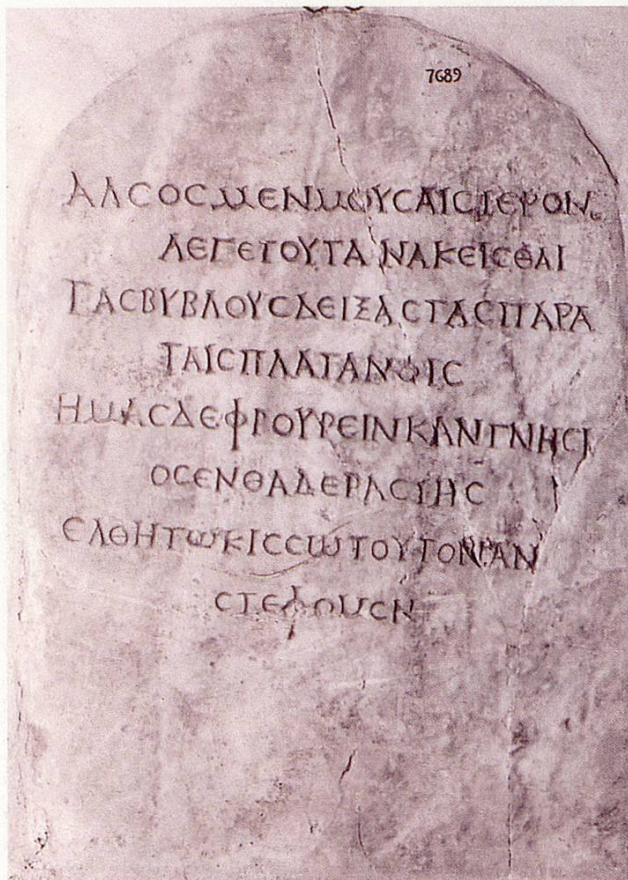 7689
ΑΛСΟСΜΕΝΜΟΥСΑΙСΙΕΡΟΝ
ΛΕΓΕΤΟΥΤΑΝΑΚΕΙСΘΑΙ
ΤΑСΒΥΒΛΟΥСΔΕΙΞΑСΤΑСΠΑΡΑ
ΤΑΙСΠΛΑΤΑΝΟΙС
ΗΜΑСΔΕΦΡΟΥΡΕΙΝΚΑΝΓΝΗСΙ
ΟСΕΝΘΑΔΕΡΑСΤΗС
ΕΛΘΗΤωΚΙССωΤΟΥΤΟΝΑΝ
СΤΕΦΟΜΕΝ